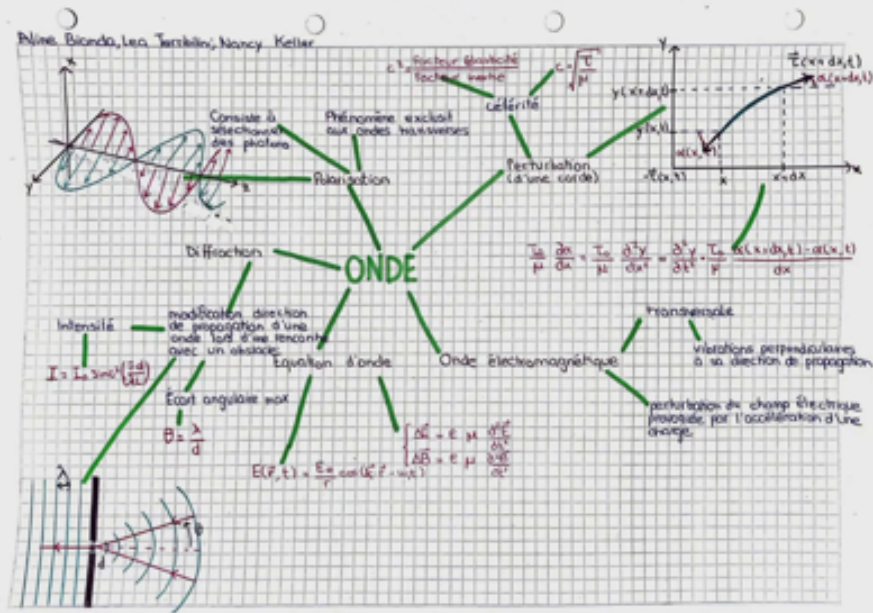 Aline Bionda, Lea Terribilini, Nancy Keller
x
y
z
Consiste à
sélectionner
des photons
Phénomène exclusif
aux ondes transverses
Polarisation
c² = Facteur élasticité
Facteur inertie
c = √τ/μ
Célérité
Perturbation
(d'une corde)
y
y(x+dx,t)
y(x,t)
τ(x+dx,t)
α(x+dx,t)
α(x,t)
-τ(x,t)
x
x+dx
x
Diffraction
ONDE
τ₀/μ ∂α/∂x = τ₀/μ ∂²y/∂x² = ∂²y/∂t² = τ₀/μ α(x+dx,t)-α(x,t)/dx
Intensité
modification direction
de propagation d'une
onde lors d'une rencontre
avec un obstacle
I = I₀ sinc²
Écart angulaire max
θ = λ/d
Equation d'onde
E(r,t) = E₀/r cos(k r - ωt)
ΔE = ε μ ∂²E/∂t²
ΔB = ε μ ∂²B/∂t²
Onde électromagnétique
transversale
vibrations perpendiculaires
à sa direction de propagation
perturbation du champ électrique
provoquée par l'accélération d'une
charge
λ
d
θ